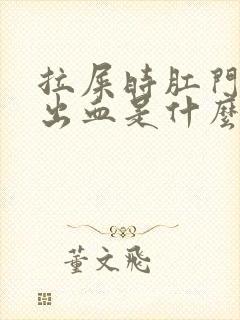 拉屎時肛門
出血是什麼
董文飛